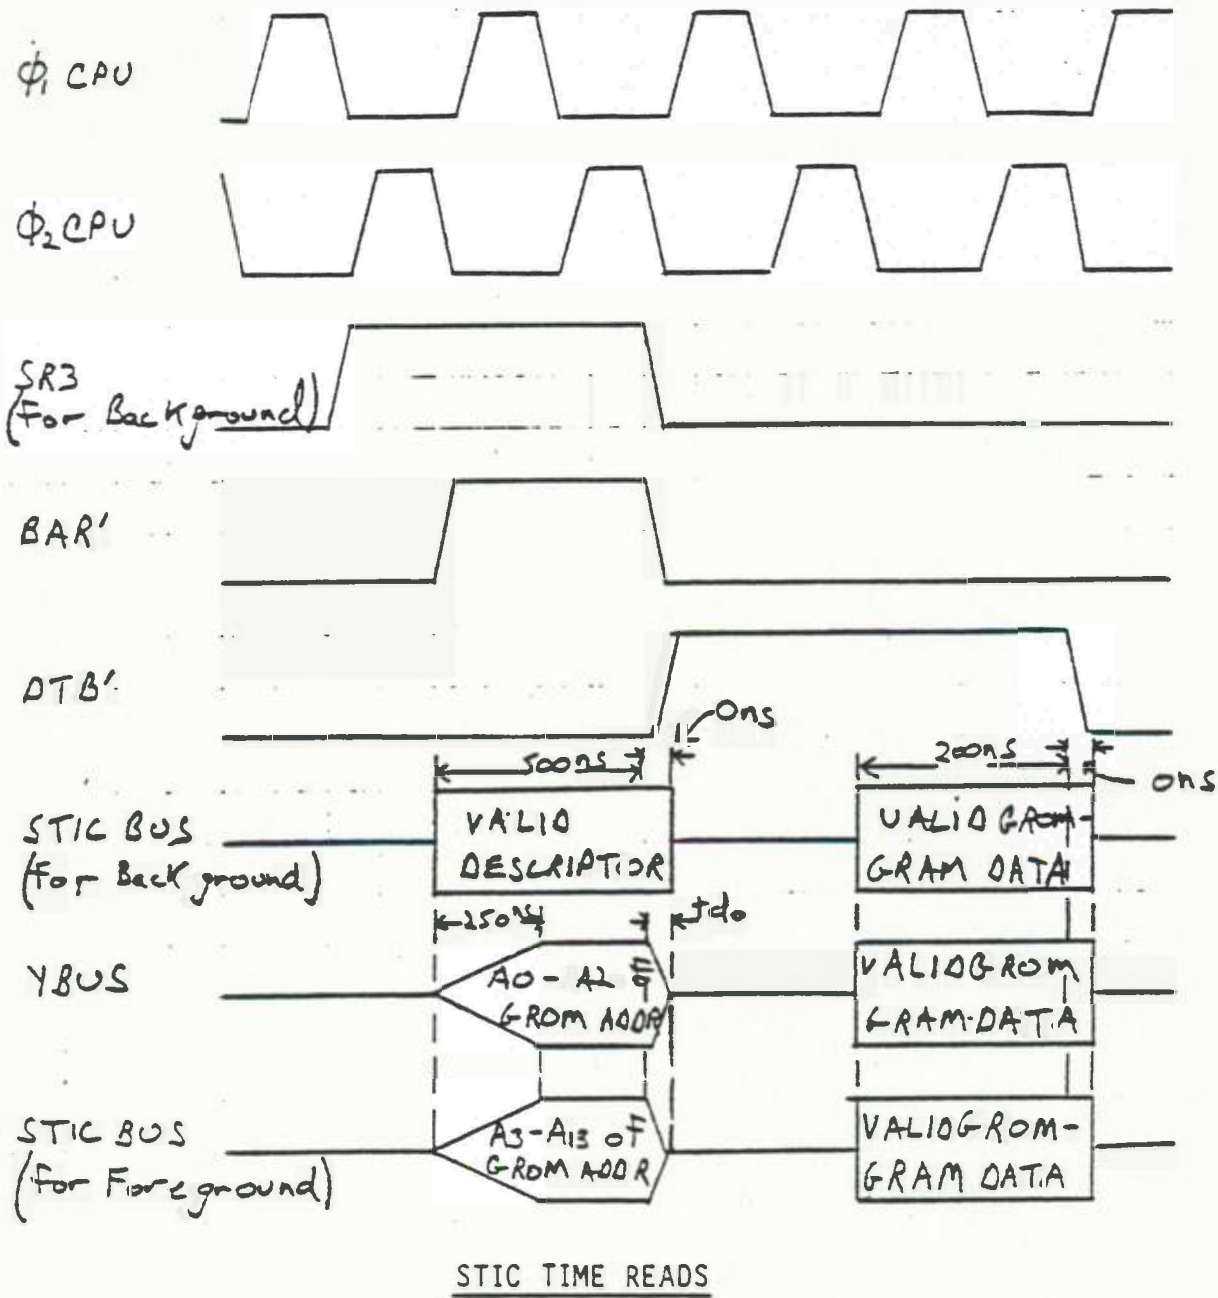 Φ1 CPU
Φ2 CPU
SR3
(For Background)
BAR'
DTB'
0ns
500ns
200ns
0ns
STIC BUS
(For Back ground)
VALID
DESCRIPTIOR
VALID GROM-
GRAM DATA
250ns
tdo
YBUS
A0 - A2 of
GROM ADDR
VALID GROM
GRAM-DATA
STIC BUS
(For Foreground)
A3-A13 of
GROM ADDR
VALID GROM-
GRAM DATA
STIC TIME READS